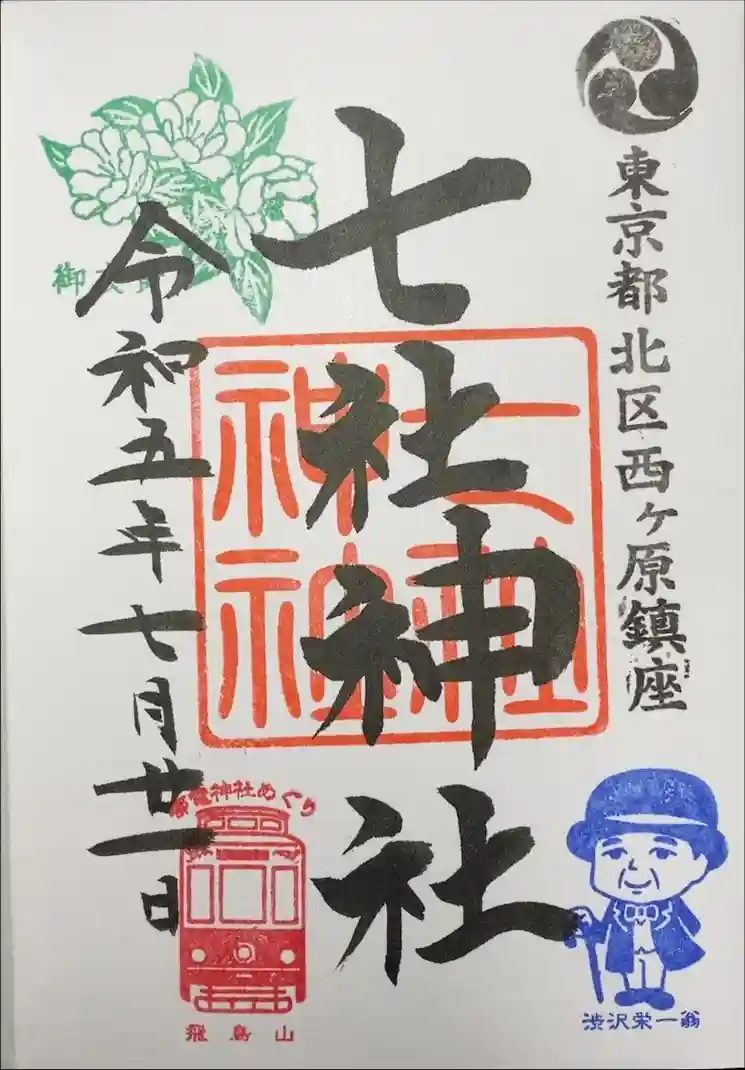 東京都北区西ヶ原鎮座
七社神社
七社神社
令和五年七月廿一日
都電神社めぐり
飛鳥山
渋沢栄一翁